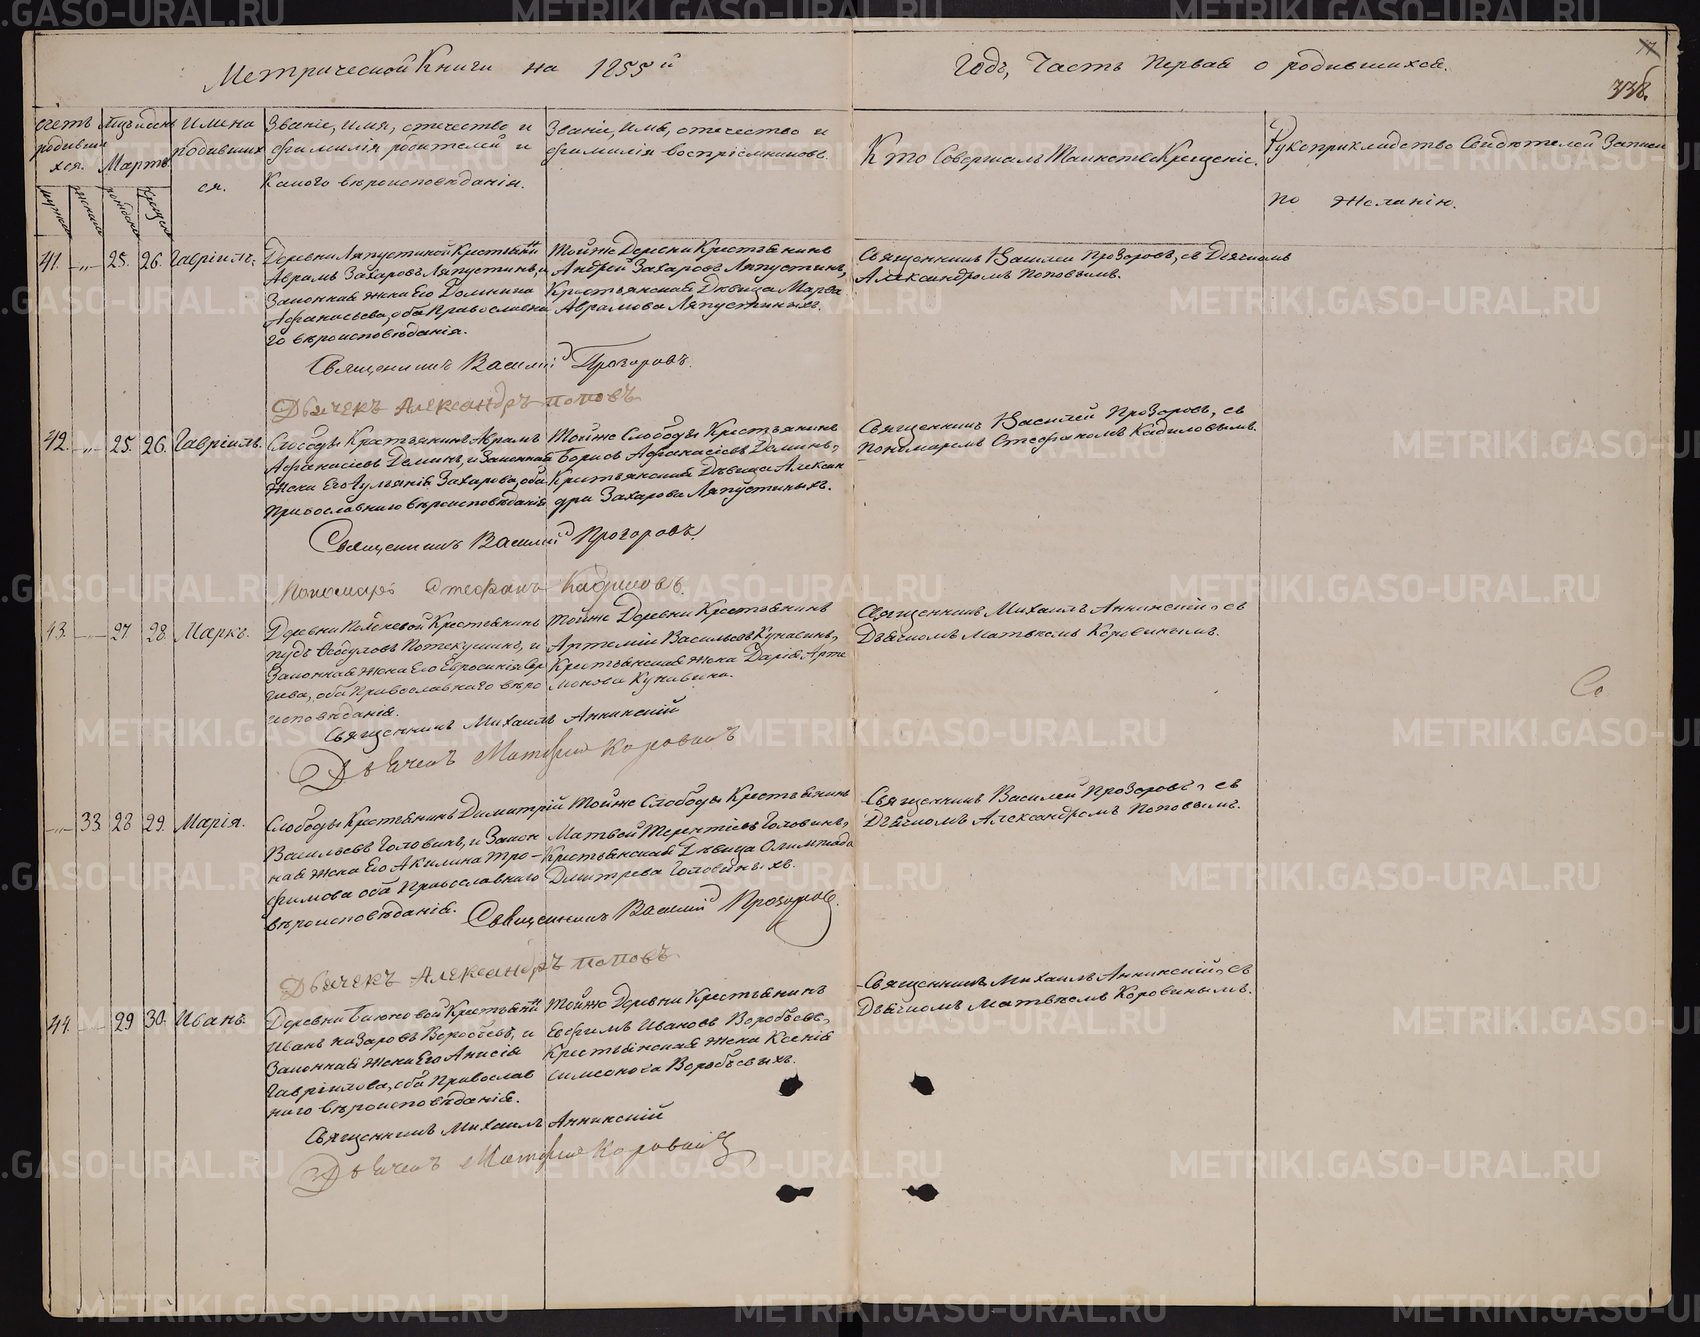 Метрической Книги на 1855й
Годъ, Часть Первая о родившихся.
338.
Счетъ родившихся.
Мѣсяцъ и день
Мартъ
Имена родившихся.
Званіе, имя, отчество и
фамилія родителей и
Какого вѣроисповѣданія.
Званіе, имя, отчество и
фамилія воспріемниковъ.
Кто Совершалъ Таинство Крещенія.
Рукоприкладство Свидѣтелей Записи
по желанію.
41. 25. 26. Гавріилъ.
Деревни Ляпустиной Крестьянинъ
Аврамъ Захаровъ Ляпустинъ, и
Законная жена Его Домника
Афанасьева, оба Православна
го вѣроисповѣданія.
Тойже Деревни Крестьянинъ
Андрей Захаровъ Ляпустинъ,
Крестьянская Дѣвица Марфа
Аврамова Ляпустиныхъ.
Священникъ Василій Прозоровъ, съ Дьячкомъ
Александромъ Поповымъ.
Священникъ Василій Прозоровъ.
Дьячекъ Александръ Поповъ
42. 25. 26. Гавріилъ.
Слободы Крестьянинъ Аврамъ
Афанасіевъ Деминъ, и Законная
жена Его Іульянія Захарова, оба
Православнаго вѣроисповѣданія
Тойже Слободы Крестьянинъ
Борисъ Афанасіевъ Деминъ,
Крестьянская Дѣвица Алексан
дра Захарова Ляпустиныхъ.
Священникъ Василій Прозоровъ, съ
Пономаремъ Стефаномъ Кадиловымъ.
Священникъ Василій Прозоровъ.
Пономарь Стефанъ Кадиловъ.
43. 27 28. Маркъ.
Крестьянинъ
Законная жена Его Евросинія Сер
гѣева, оба Православнаго вѣро
исповѣданія.
Тойже Деревни Крестьянинъ
Артемій Васильевъ Кунавинъ,
Крестьянская жена Дарія Арте
монова Кунавина.
Священникъ Михаилъ Аннинскій, съ
Дьячкомъ Матвѣемъ Коровинымъ.
Священникъ Михаилъ Аннинскій
Дьячекъ Матфей Коровинъ
33. 28 29. Марія.
Слободы Крестьянинъ Димитрій
Васильевъ Головинъ, и Закон
ная жена Его Акилина Тро-
фимова оба Православнаго
вѣроисповѣданія.
Тойже Слободы Крестьянинъ
Матвей Терентіевъ Головинъ,
Крестьянская Дѣвица Олимпіада
Дмитрева Головиныхъ.
Священникъ Василій Прозоровъ, съ
Дьячкомъ Александромъ Поповымъ.
Священникъ Василій Прозоровъ.
Дьячекъ Александръ Поповъ
44. 29 30. Иванъ.
Деревни Бисковой Крестьянинъ
Иванъ Назаровъ Воробьевъ, и
Законная жена Его Анисія
Гавріилова, оба Православ
наго вѣроисповѣданія.
Тойже Деревни Крестьянинъ
Евфимъ Ивановъ Воробьевъ,
Крестьянская жена Ксенія
Симеонова Воробьевыхъ.
Священникъ Михаилъ Аннинскій, съ
Дьячкомъ Матвѣемъ Коровинымъ.
Священникъ Михаилъ Аннинскій
Дьячекъ Матфей Коровинъ
METRIKI.GASO-URAL.RU